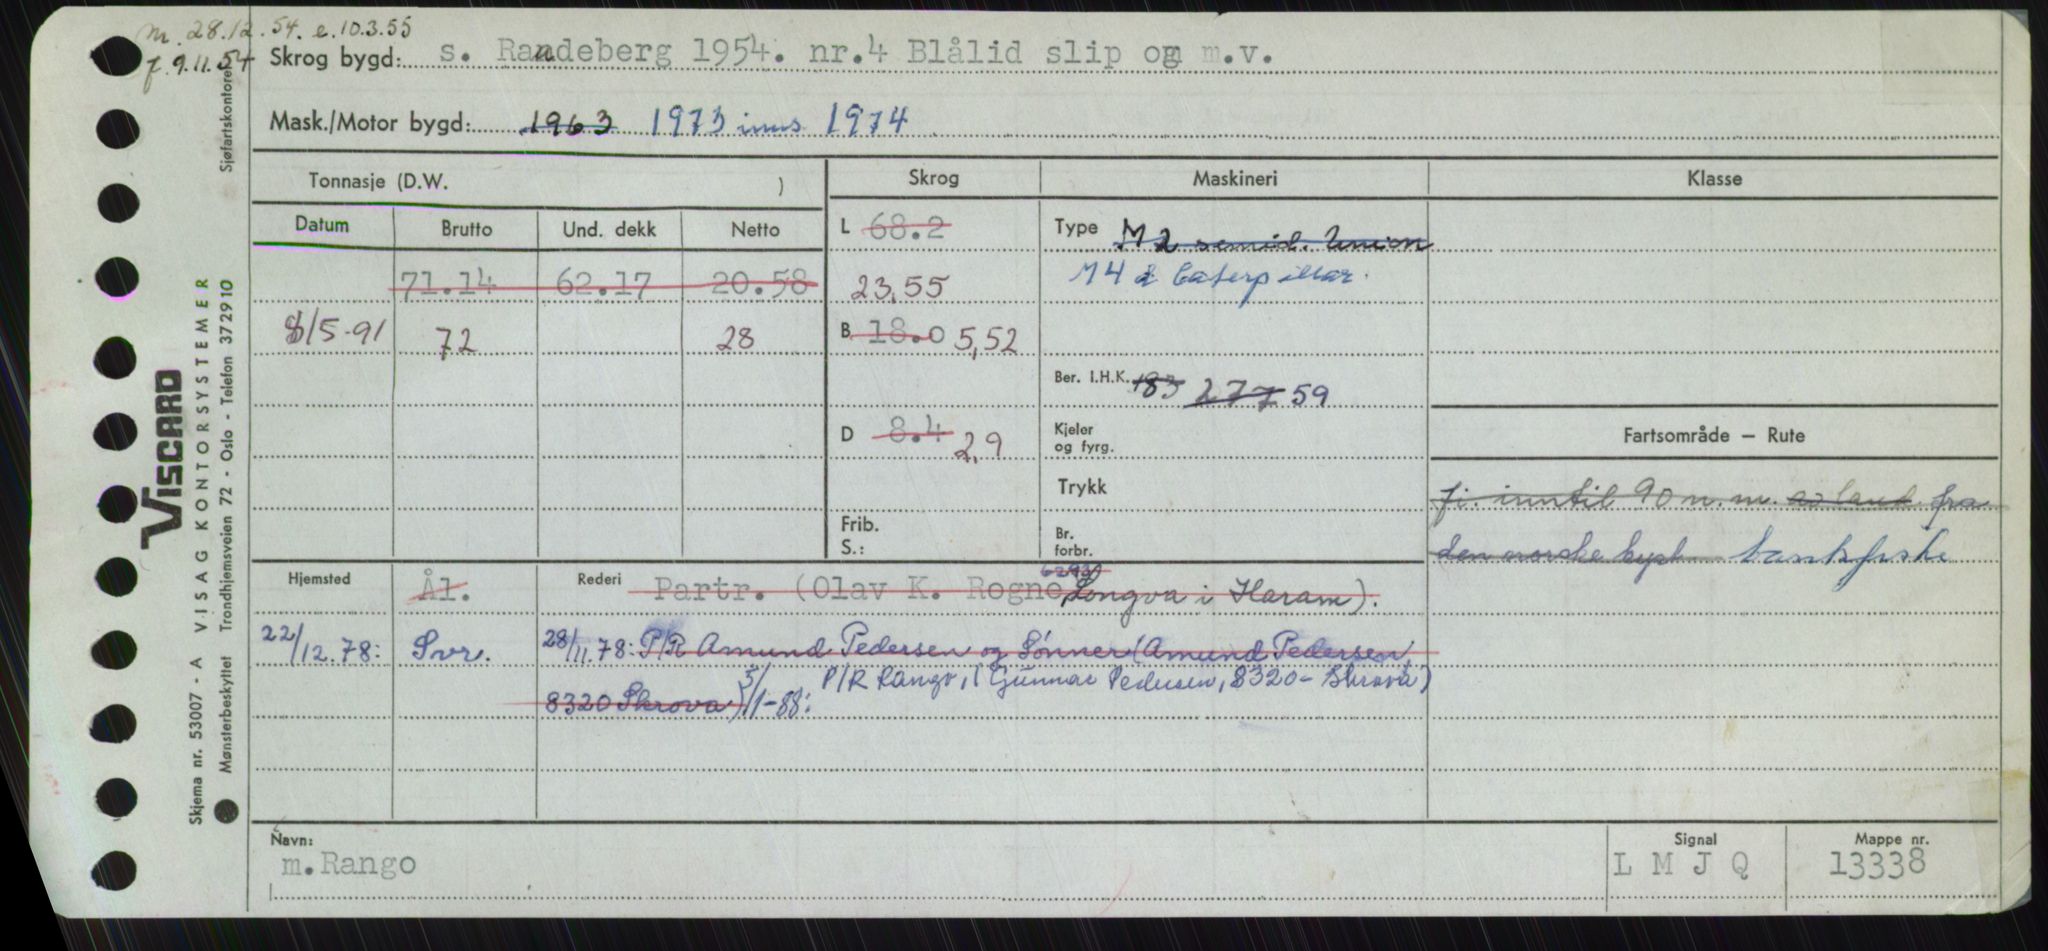 m. 28.12.54. e.10.3.55
f 9.11.54
Skrog bygd: s. Randeberg 1954. nr.4 Blålid slip og m.v.
Mask./Motor bygd: 1963 1973 inns 1974
Tonnasje (D.W. )
Skrog
Maskineri
Klasse
Datum
Brutto
Und. dekk
Netto
L 68.2
Type M 2 semid. Union
71.14 62.17 20.58
23,55
M 4 d Caterpillar.
8/5-91 72 28
B 18.0 5,52
Ber. I.H.K. 183 277 59
D 8.4 2,9
Kjeler
og fyrg.
Fartsområde – Rute
Trykk
fi. inntil 90 n. m. av land fra
Frib.
S.:
Br.
forbr.
den norske kyst bankfiske
Hjemsted Ål.
Rederi Partr. (Olav K. Rogne, 6293 Longva i Haram).
22/12.78: Svr.
28/11.78: P/R Amund Pedersen og Sønner (Amund Pedersen,
8320 Skrova) 5/1-88: P/R Rango, (Gunnar Pedersen, 8320- Skrova)
Navn:
m.Rango
Signal
L M J Q
Mappe nr.
13338
VISCARD
Skjema nr. 53007 - A VISAG KONTORSYSTEMER
Mønsterbeskyttet Trondhjemsveien 72 - Oslo - Telefon 372910
Sjøfartskontoret